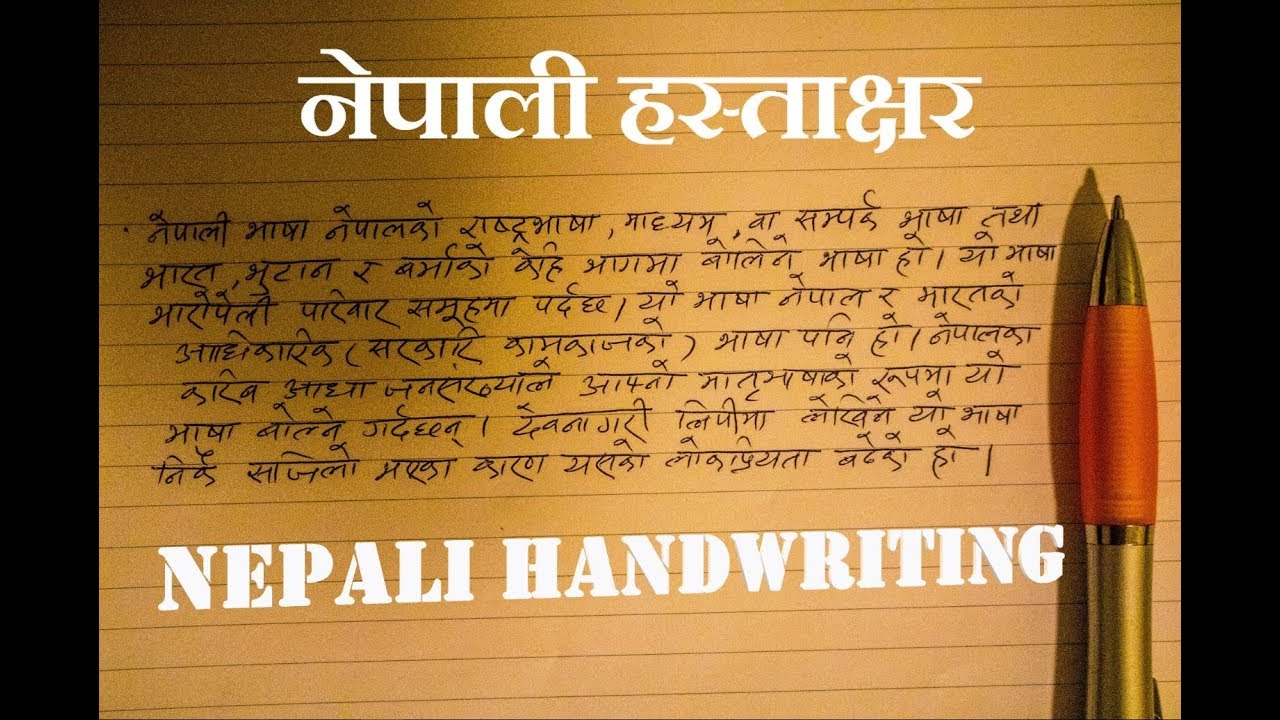 नेपाली हस्ताक्षर
नेपाली भाषा नेपालको राष्ट्रभाषा, माध्यम, वा सम्पर्क भाषा तथा
भारत, भुटान र बर्माको केहि भागमा बोलिने भाषा हो। यो भाषा
भारोपेली परिवार समूहमा पर्दछ। यो भाषा नेपाल र भारतको
आधिकारिक (सरकारि कामकाजको) भाषा पनि हो। नेपालका
करिब आधा जनसंख्याले आफ्नो मातृभाषाको रूपमा यो
भाषा बोल्ने गर्दछन्। देवनागरी लिपीमा लेखिने यो भाषा
निकै सजिलो भएका कारण यसको लोकप्रियता बढेको हो।
NEPALI HANDWRITING